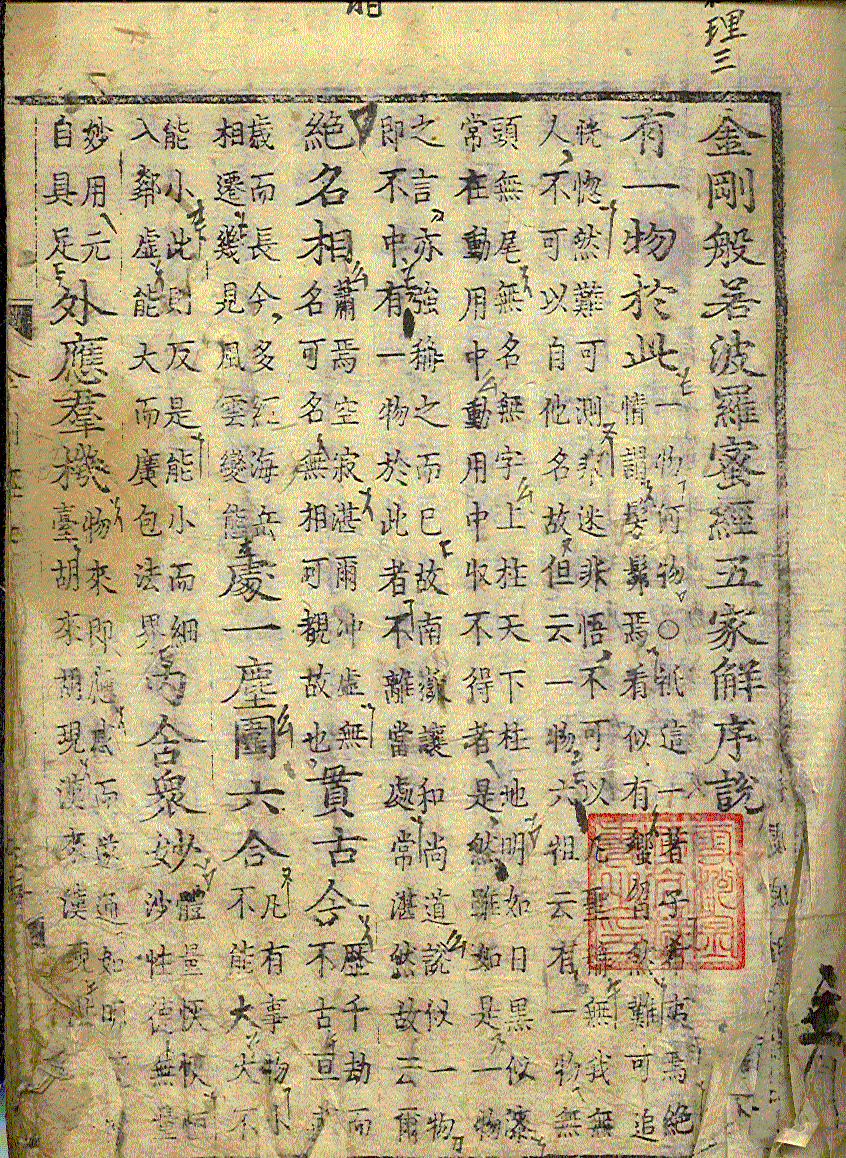 理三
金剛般若波羅蜜經五家解序說
有一物於此 一物何物○祇這一著子希夷焉絶
情謂髣髴焉看似有 然難可追
恍惚然難可測非迷非悟不可以凡聖稱無我無
人不可以自他名故但云一物六祖云有一物無
頭無尾無名無字上柱天下柱地明如日黑似漆
常在動用中動用中收不得者是然雖如是一物
之言亦強稱之而已故南嶽讓和尙道說似一物
即不中有一物於此者不離當處常湛然故云爾
絶名相 蕭焉空寂湛爾沖虛無
名可名無相可覩故也 貫古今 歷千劫而
不古亘萬
歲而長今多經海岳
相遷幾見風雲變態 處一塵圍六合 凡有事物小
不能大大不
能小此則反是能小而細
入鄰虛能大而廣包法界 內含衆妙 體量恢恢恒
沙性德無量
妙用元
自具足 外應羣機 物來即應感而遂通如明
臺胡來胡現漢來漢現